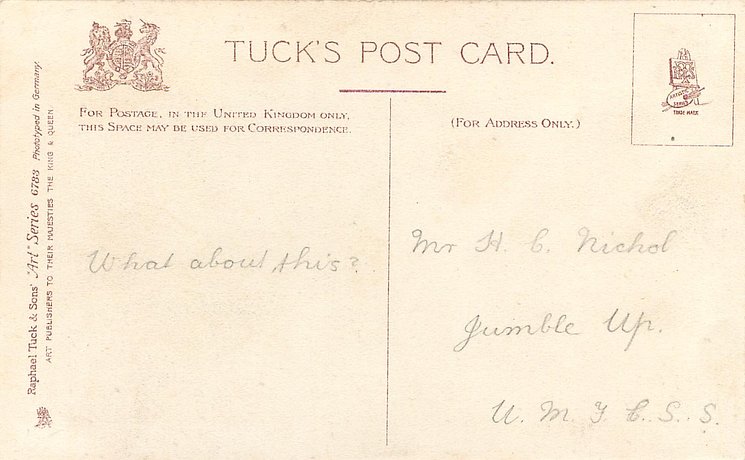 TUCK'S POST CARD.
FOR POSTAGE, IN THE UNITED KINGDOM ONLY,
THIS SPACE MAY BE USED FOR CORRESPONDENCE.
(FOR ADDRESS ONLY.)
ARTISTIC
SERIES
TRADE MARK
Raphael Tuck & Sons' "Art" Series 6783 Phototyped in Germany.
ART PUBLISHERS TO THEIR MAJESTIES THE KING & QUEEN.
What about this?
Mr H. C. Nichol
Jumble Up.
U. M. F. C. S. S.